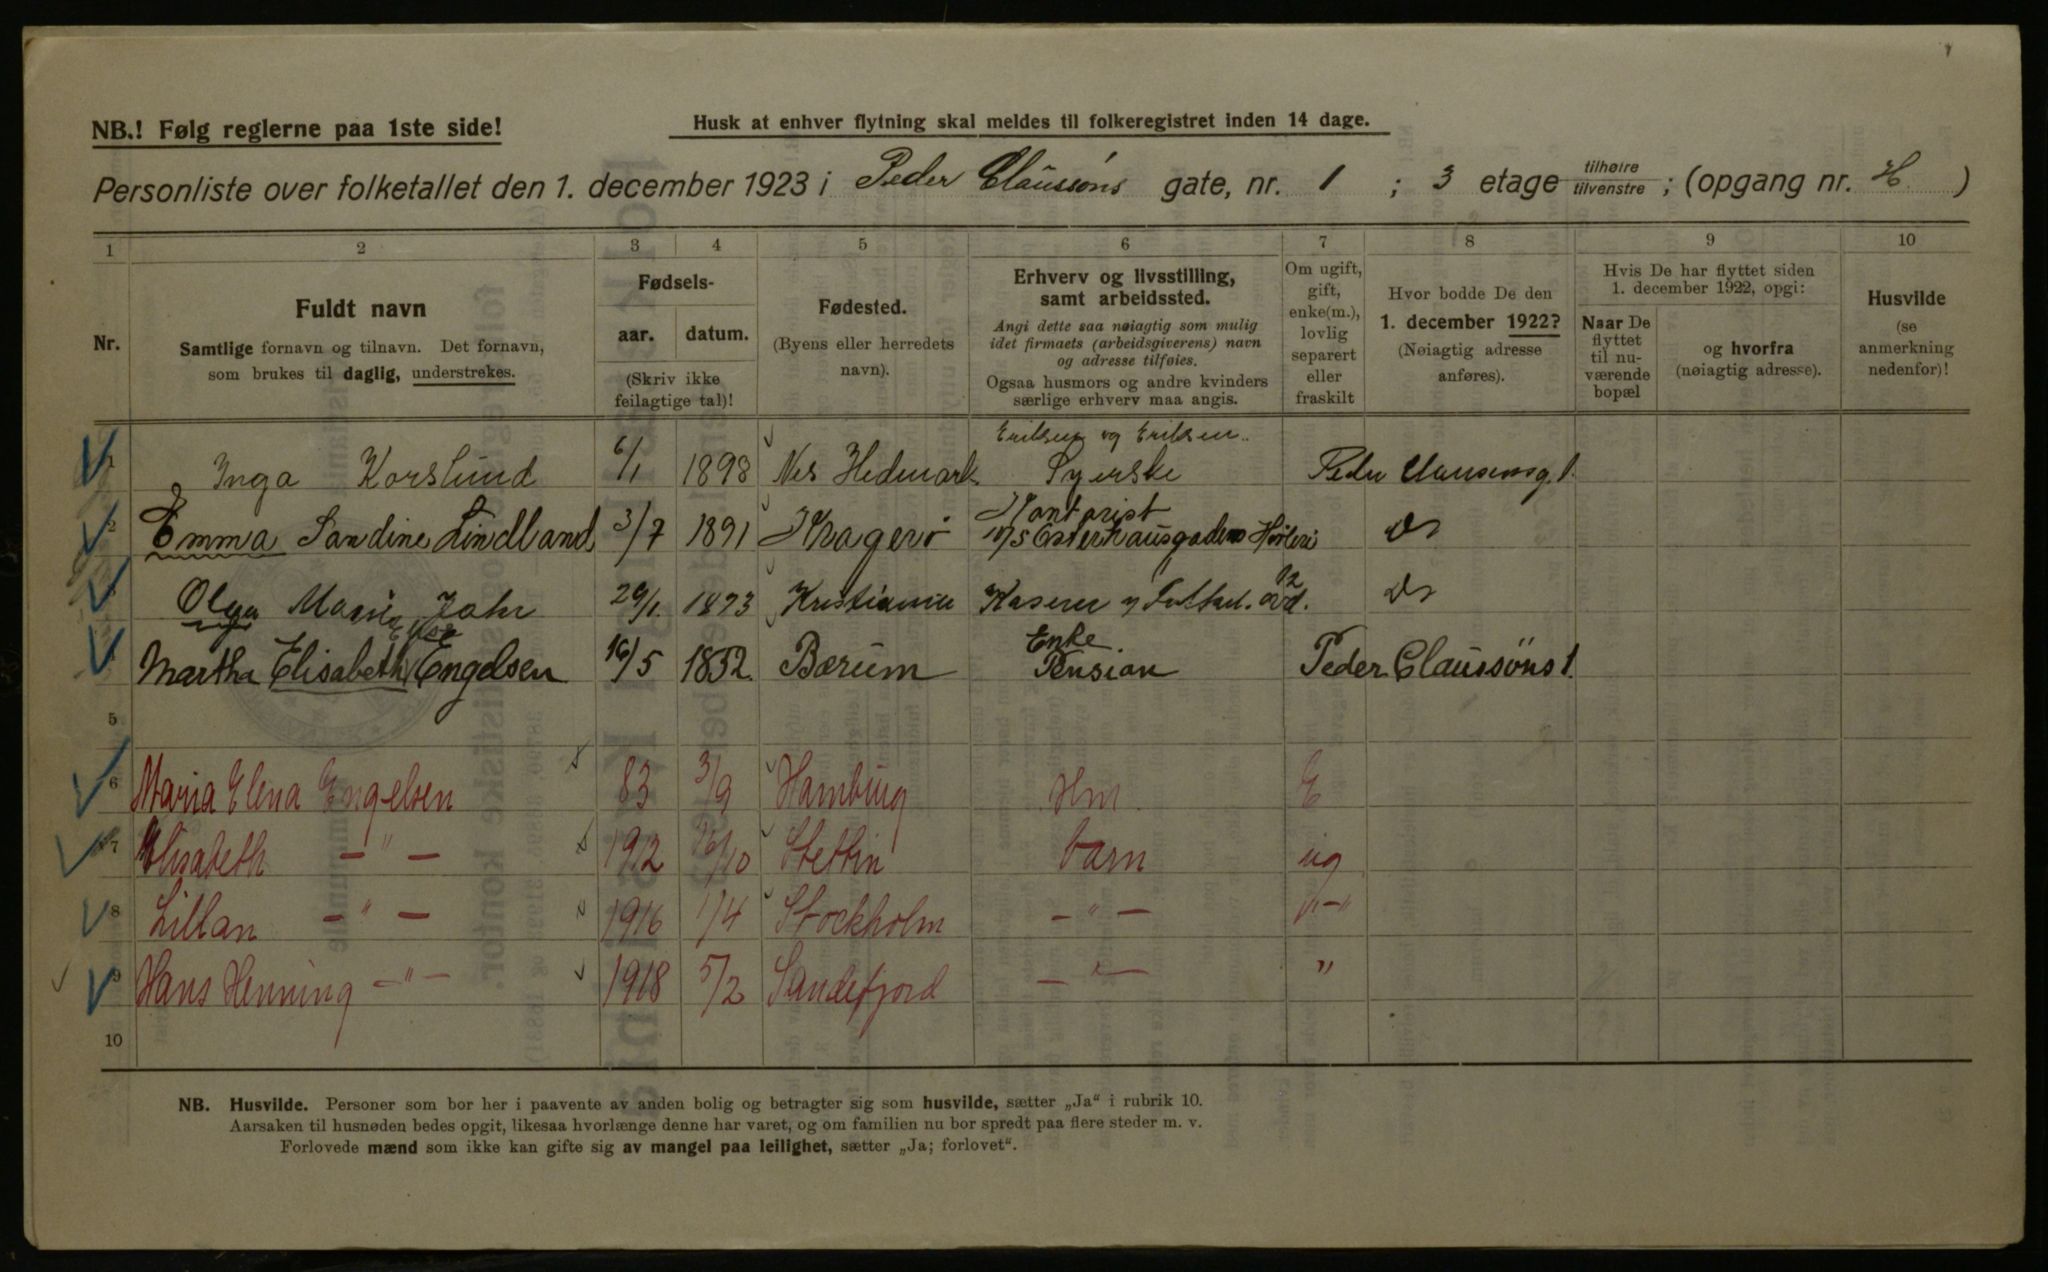 NB.! Følg reglerne paa 1ste side!
Husk at enhver flytning skal meldes til folkeregistret inden 14 dage.
Personliste over folketallet den 1. december 1923 i Peder Claussøns gate, nr. 1 ; 3 etage tilhøire tilvenstre ; (opgang nr. H )
1 2 3 4 5 6 7 8 9 10
Nr.
Fuldt navn
Samtlige fornavn og tilnavn. Det fornavn,
som brukes til daglig, understrekes.
Fødsels-
aar. datum.
(Skriv ikke
feilagtige tal)!
Fødested.
(Byens eller herredets
navn).
Erhverv og livsstilling,
samt arbeidssted.
Angi dette saa nøiagtig som mulig
idet firmaets (arbeidsgiverens) navn
og adresse tilføies.
Ogsaa husmors og andre kvinders
særlige erhverv maa angis.
Om ugift,
gift,
enke(m.),
lovlig
separert
eller
fraskilt
Hvor bodde De den
1. december 1922?
(Nøiagtig adresse
anføres).
Hvis De har flyttet siden
1. december 1922, opgi:
Naar De
flyttet
til nu-
værende
bopæl
og hvorfra
(nøiagtig adresse).
Husvilde
(se
anmerkning
nedenfor)!
Eriksen og Eriksen
1 Inga Korslund 6/1 1898 Nes Hedmark Syerske Peder Clausensg. 1.
2 Emma Sandine Lindland 3/7 1891 Kragerø Kontorist Do
3 Olga Marie Jahr 29/1 1873 Kristiania Do
Enke
4 Martha Elisabeth Engelsen 16/5 1852. Bærum Pension Peder Claussøns 1.
5
6 Maria Elena Engelsen 83 3/9 Hamburg Hm E
7 Elisabeth —"— 1912 26/10 Stettin barn ug
8 Lillan —"— 1916 1/4 Stockholm —"— "—"
9 Hans Henning —"— 1918 5/2 Sandefjord —"— "
10
NB. Husvilde. Personer som bor her i paavente av anden bolig og betragter sig som husvilde, sætter „Ja“ i rubrik 10.
Aarsaken til husnøden bedes opgit, likesaa hvorlænge denne har varet, og om familien nu bor spredt paa flere steder m. v.
Forlovede mænd som ikke kan gifte sig av mangel paa leilighet, sætter „Ja; forlovet“.